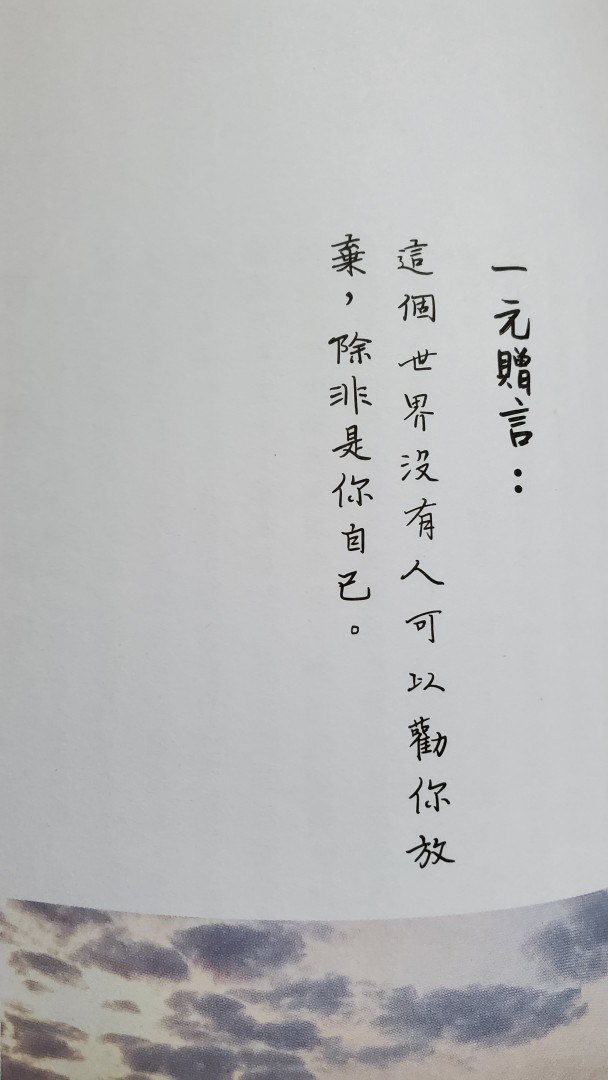 一元贈言：
這個世界沒有人可以勸你放
棄，除非是你自己。